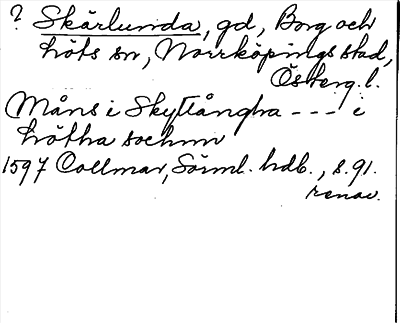 ? Skärlunda, gd, Borg och
Löts sn, Norrköpings stad,
Österg. l.
Måns i Skyllångha --- i
Lötha sochnn
1597 Collmar, Sörml. hdb., s. 91.
renov.